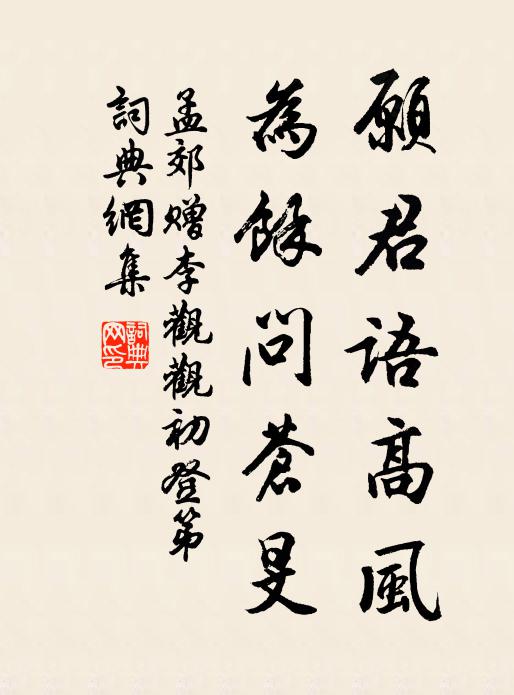 願君語高風
為餘問蒼旻
孟郊贈李觀觀初登第
詞典網集
詞典
网印